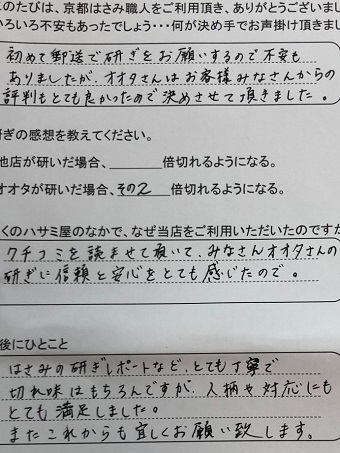 のたびは、京都はさみ職人をご利用頂き、ありがとうございまし
いろいろ不安もあったでしょう…何が決め手でお声掛け頂きまし
初めて郵送で研ぎをお願いするので不安も
ありましたが、オオタさんはお客様みなさんからの
評判もとても良かったので決めさせて頂きました。
研ぎの感想を教えてください。
他店が研いだ場合、______倍切れるようになる。
オオタが研いだ場合、その2 倍切れるようになる。
くのハサミ屋のなかで、なぜ当店をご利用いただいたのですか
クチコミを読ませて頂いて、みなさんオオタさんの
研ぎに信頼と安心をとても感じたので。
後にひとこと
はさみの研ぎレポートなど、とても丁寧で
切れ味はもちろんですが、人柄や対応にも
とても満足しました。
またこれからも宜しくお願い致します。